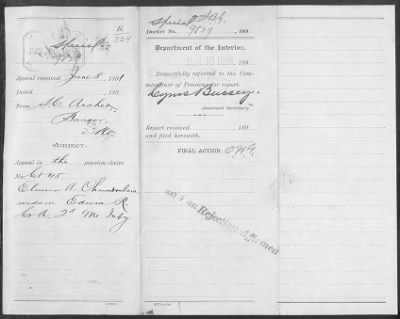 Special
9829
Appeal received June 8, 1891
Dated 189
From S. C.
Bangor,
Me.
SUBJECT:
Appeal in the pension claim
No.
Elmira A. Chamberlain
widow Edwin R.
Co A. 2d Me Infy
Special
Docket No. 9829 189
Department of the Interior,
189
Respectfully referred to the Com-
missioner of Pensions for report.
Cyrus Bussey,
Assistant Secretary.
Report received 189
and filed herewith.
FINAL ACTION:
MAY 1892
Rejection Affirmed